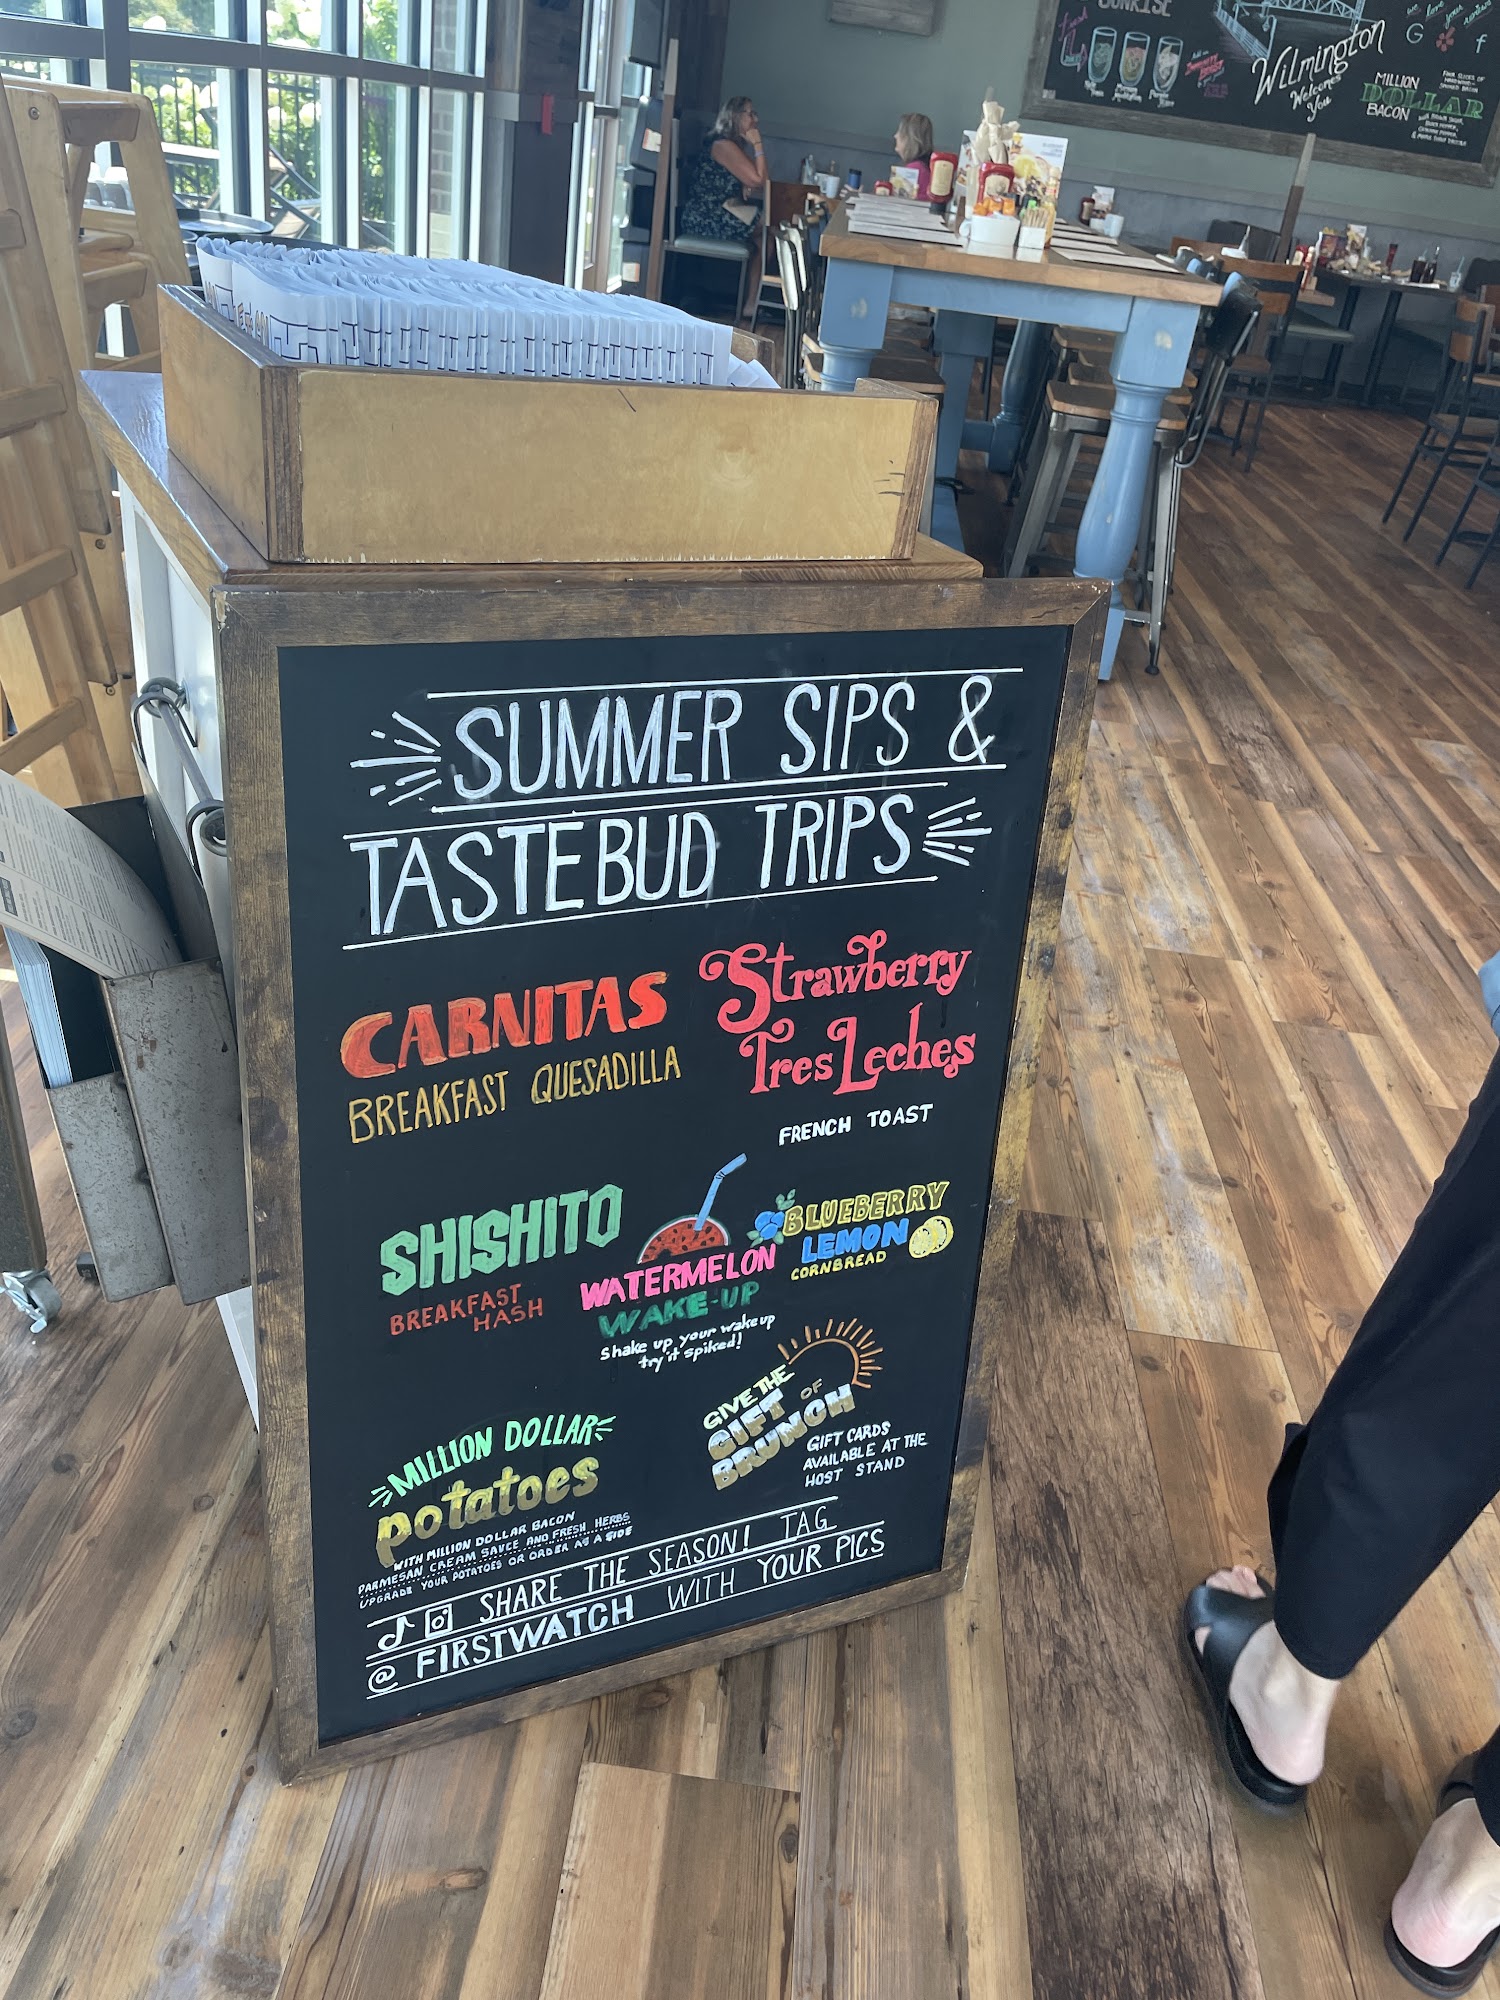 SUNRISE
Wilmington
Welcomes
You
MILLION
DOLLAR
BACON
FOUR SLICES OF
HARDWOOD-
SMOKED BACON
G
f
SUMMER SIPS &
TASTEBUD TRIPS
CARNITAS
BREAKFAST QUESADILLA
Strawberry
Tres Leches
FRENCH TOAST
SHISHITO
BREAKFAST
HASH
WATERMELON
WAKE-UP
Shake up your wakeup
try it spiked!
BLUEBERRY
LEMON
CORNBREAD
MILLION DOLLAR
potatoes
WITH MILLION DOLLAR BACON
PARMESAN CREAM SAUCE AND FRESH HERBS
UPGRADE YOUR POTATOES OR ORDER AS A SIDE
GIVE THE
GIFT OF
BRUNCH
GIFT CARDS
AVAILABLE AT THE
HOST STAND
SHARE THE SEASON! TAG
@FIRSTWATCH WITH YOUR PICS